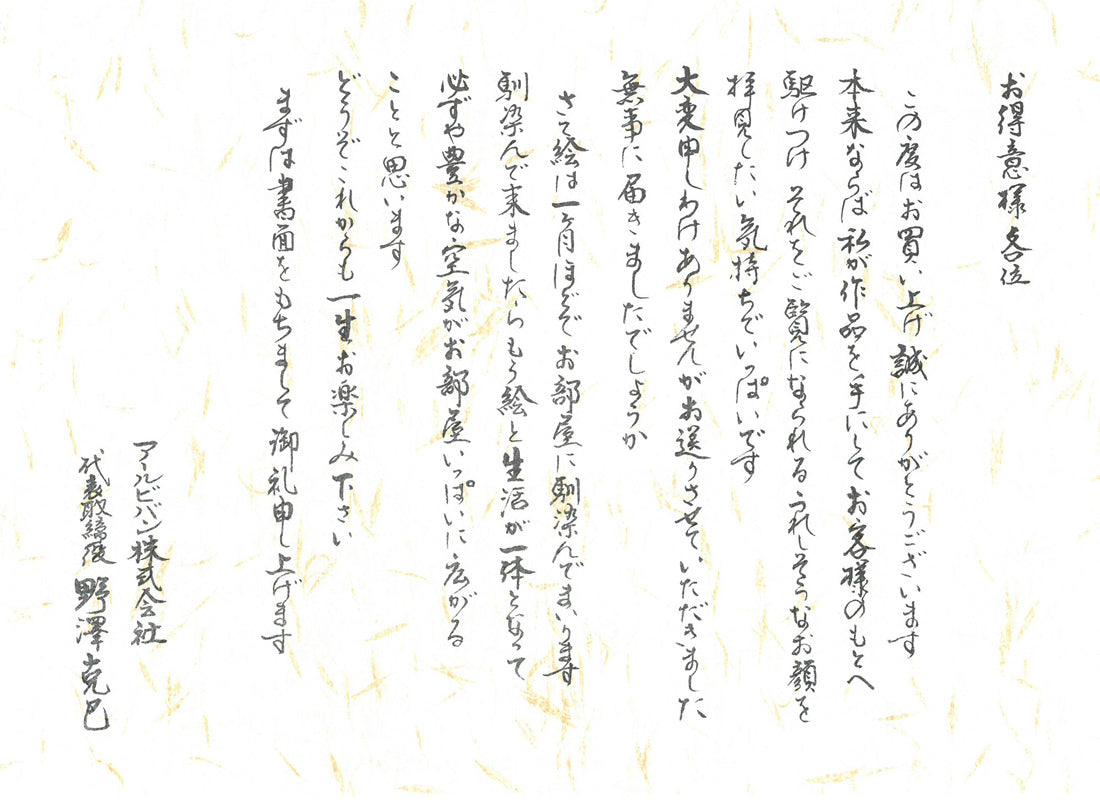 お得意様各位
この度はお買い上げ誠にありがとうございます
本来ならば私が作品を手にしてお客様のもとへ
駆けつけ それをご覧になられるうれしそうなお顔を
拝見したい気持ちでいっぱいです
大変申しわけありませんがお送りさせていただきました
無事に届きましたでしょうか
さて絵は一ヶ月ほどで お部屋に馴染んでまいります
馴染んで来ましたらもう絵と生活が一体となって
必ずや豊かな空気がお部屋いっぱいに広がる
ことと思います
どうぞこれからも一生お楽しみ下さい
まずは書面をもちまして御礼申し上げます
アールビバン株式会社
代表取締役 野澤克巳